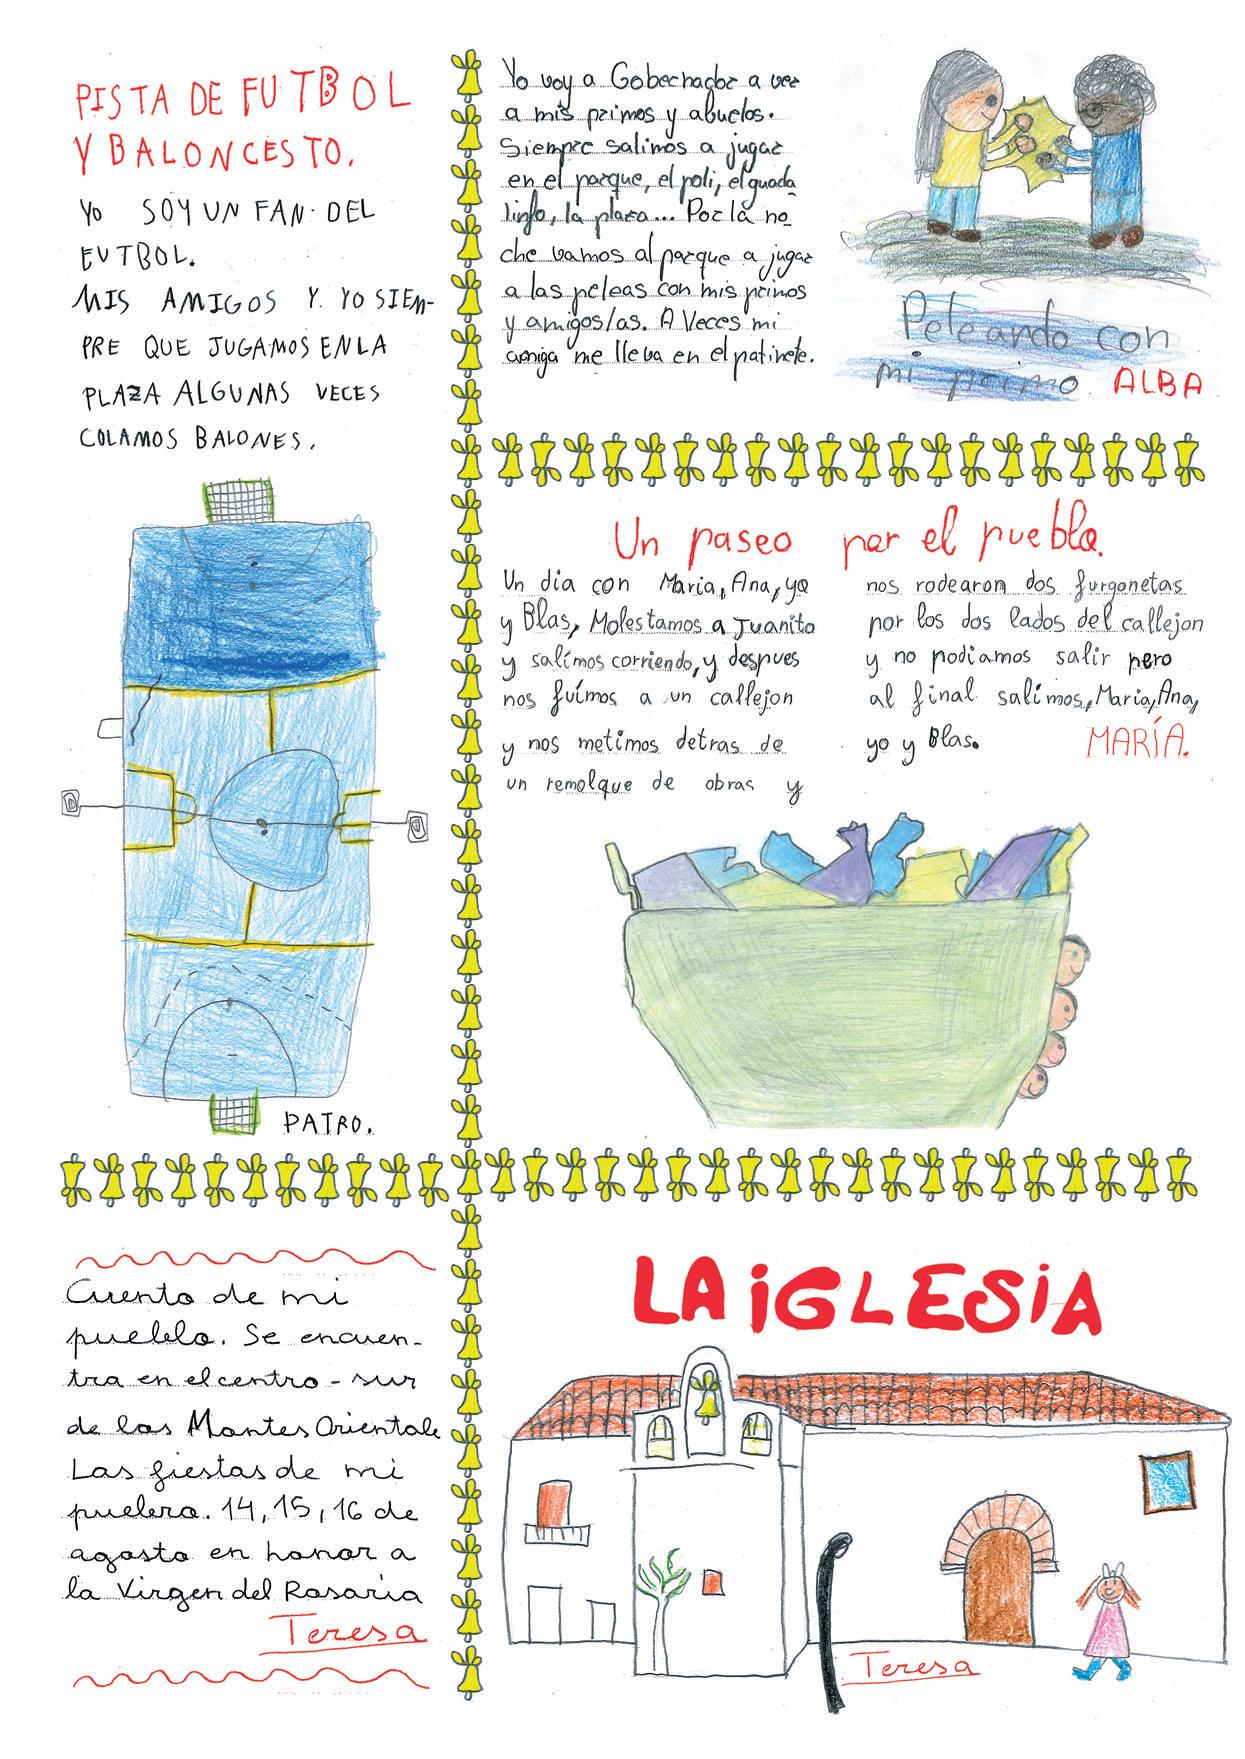 PISTA DE FUTBOL
Y BALONCESTO.
Yo SOY UN FAN DEL
FUTBOL.
MIS AMIGOS Y YO SIEM-
PRE QUE JUGAMOS EN LA
PLAZA ALGUNAS VECES
COLAMOS BALONES.
PATRO.
Yo voy a Gobernador a ver
a mis primos y abuelos.
Siempre salimos a jugar
en el parque, el poli, el guada
linfo, la plaza... Por la no
che vamos al parque a jugar
a las peleas con mis primos
y amigos/as. A Veces mi
amiga me lleva en el patinete.
Peleando con
mi primo
ALBA
Un paseo por el pueblo.
Un dia con Maria, Ana, yo
y Blas, Molestamos a Juanito
y salímos corriendo, y despues
nos fuímos a un callejon
y nos metimos detras de
un remolque de obras y
nos rodearon dos furgonetas
por los dos lados del callejon
y no podiamos salir pero
al final salimos, Maria, Ana,
yo y Blas.
MARÍA.
Cuento de mi
pueblo. Se encuen-
tra en el centro - sur
de los Montes Orientale
Las fiestas de mi
14, 15, 16 de
agosto en honor a
la Virgen del Rosario
Teresa
LA iGLESiA
Teresa